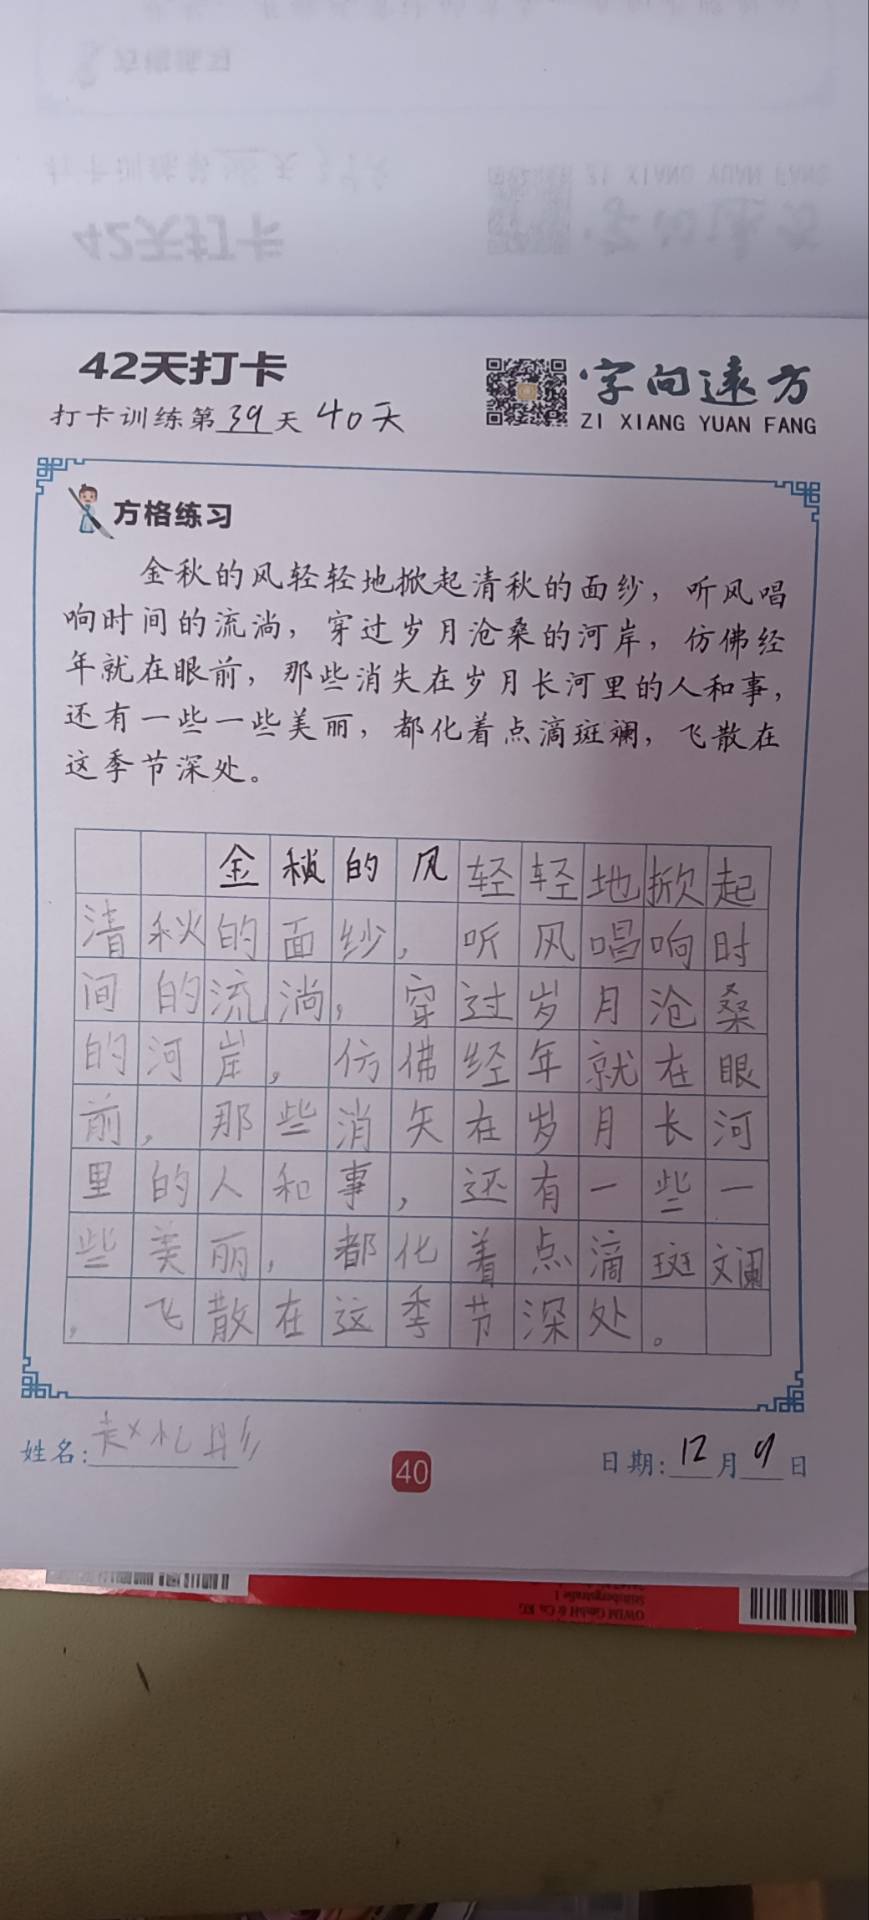 42天打卡
字向遠方
打卡训练第39天 40天
ZI XIANG YUAN FANG
方格练习
金秋的风轻轻地掀起清秋的面纱，听风唱
响时间的流淌，穿过岁月沧桑的河岸，仿佛经
年就在眼前，那些消失在岁月长河里的人和事，
还有一些一些美丽，都化着点滴斑斓，飞散在
这季节深处。
金秋的风轻轻地掀起
清秋的面纱，听风唱响时
间的流淌，穿过岁月沧桑
的河岸，仿佛经年就在眼
前，那些消矢在岁月长河
里的人和事，还有一些一
些美丽，都化着点滴斑斓
，飞散在这季节深处。
姓名:赵
40
日期:12月9日
OWIM GmbH & Co. KG
Stiftsbergstraße 1